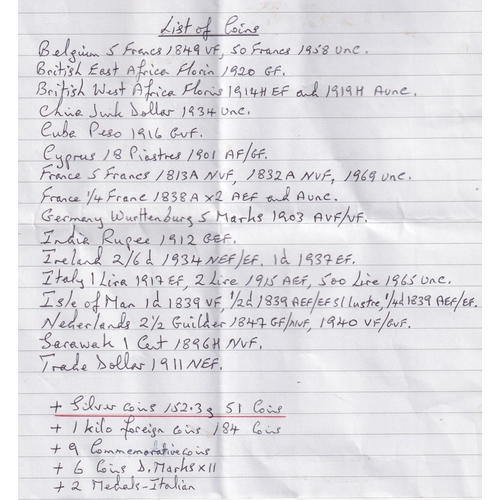 List of Coins
Belgium 5 Francs 1849 VF, 50 Francs 1958 UNC.
British East Africa Florin 1920 GF.
British West Africa Florins 1914H EF and 1919H AUNC.
China Junk Dollar 1934 UNC.
Cuba Peso 1916 GVF.
Cyprus 18 Piastres 1901 AF/GF.
France 5 Francs 1813A NVF, 1832A NVF, 1969 UNC.
France 1/4 Franc 1838A x2 AEF and AUNC.
Germany Wurttenburg 5 Marks 1903 AVF/VF.
India Rupee 1912 GEF.
Ireland 2/6d 1934 NEF/EF. 1d 1937 EF.
Italy 1 Lira 1917 EF, 2 Lire 1915 AEF, 500 Lire 1965 UNC.
Isle of Man 1d 1839 VF, 1/2d 1839 AEF/EF Sl lustre, 1/4d 1839 AEF/EF.
Netherlands 2 1/2 Guilder 1847 GF/NVF, 1940 VF/GVF.
Sarawak 1 Cent 1896H NVF.
Trade Dollar 1911 NEF.
+ Silver coins 152.3g 51 Coins
+ 1 kilo foreign coins 184 Coins
+ 9 Commemorative coins
+ 6 Coins D. Marks x11
+ 2 Medals-Italian